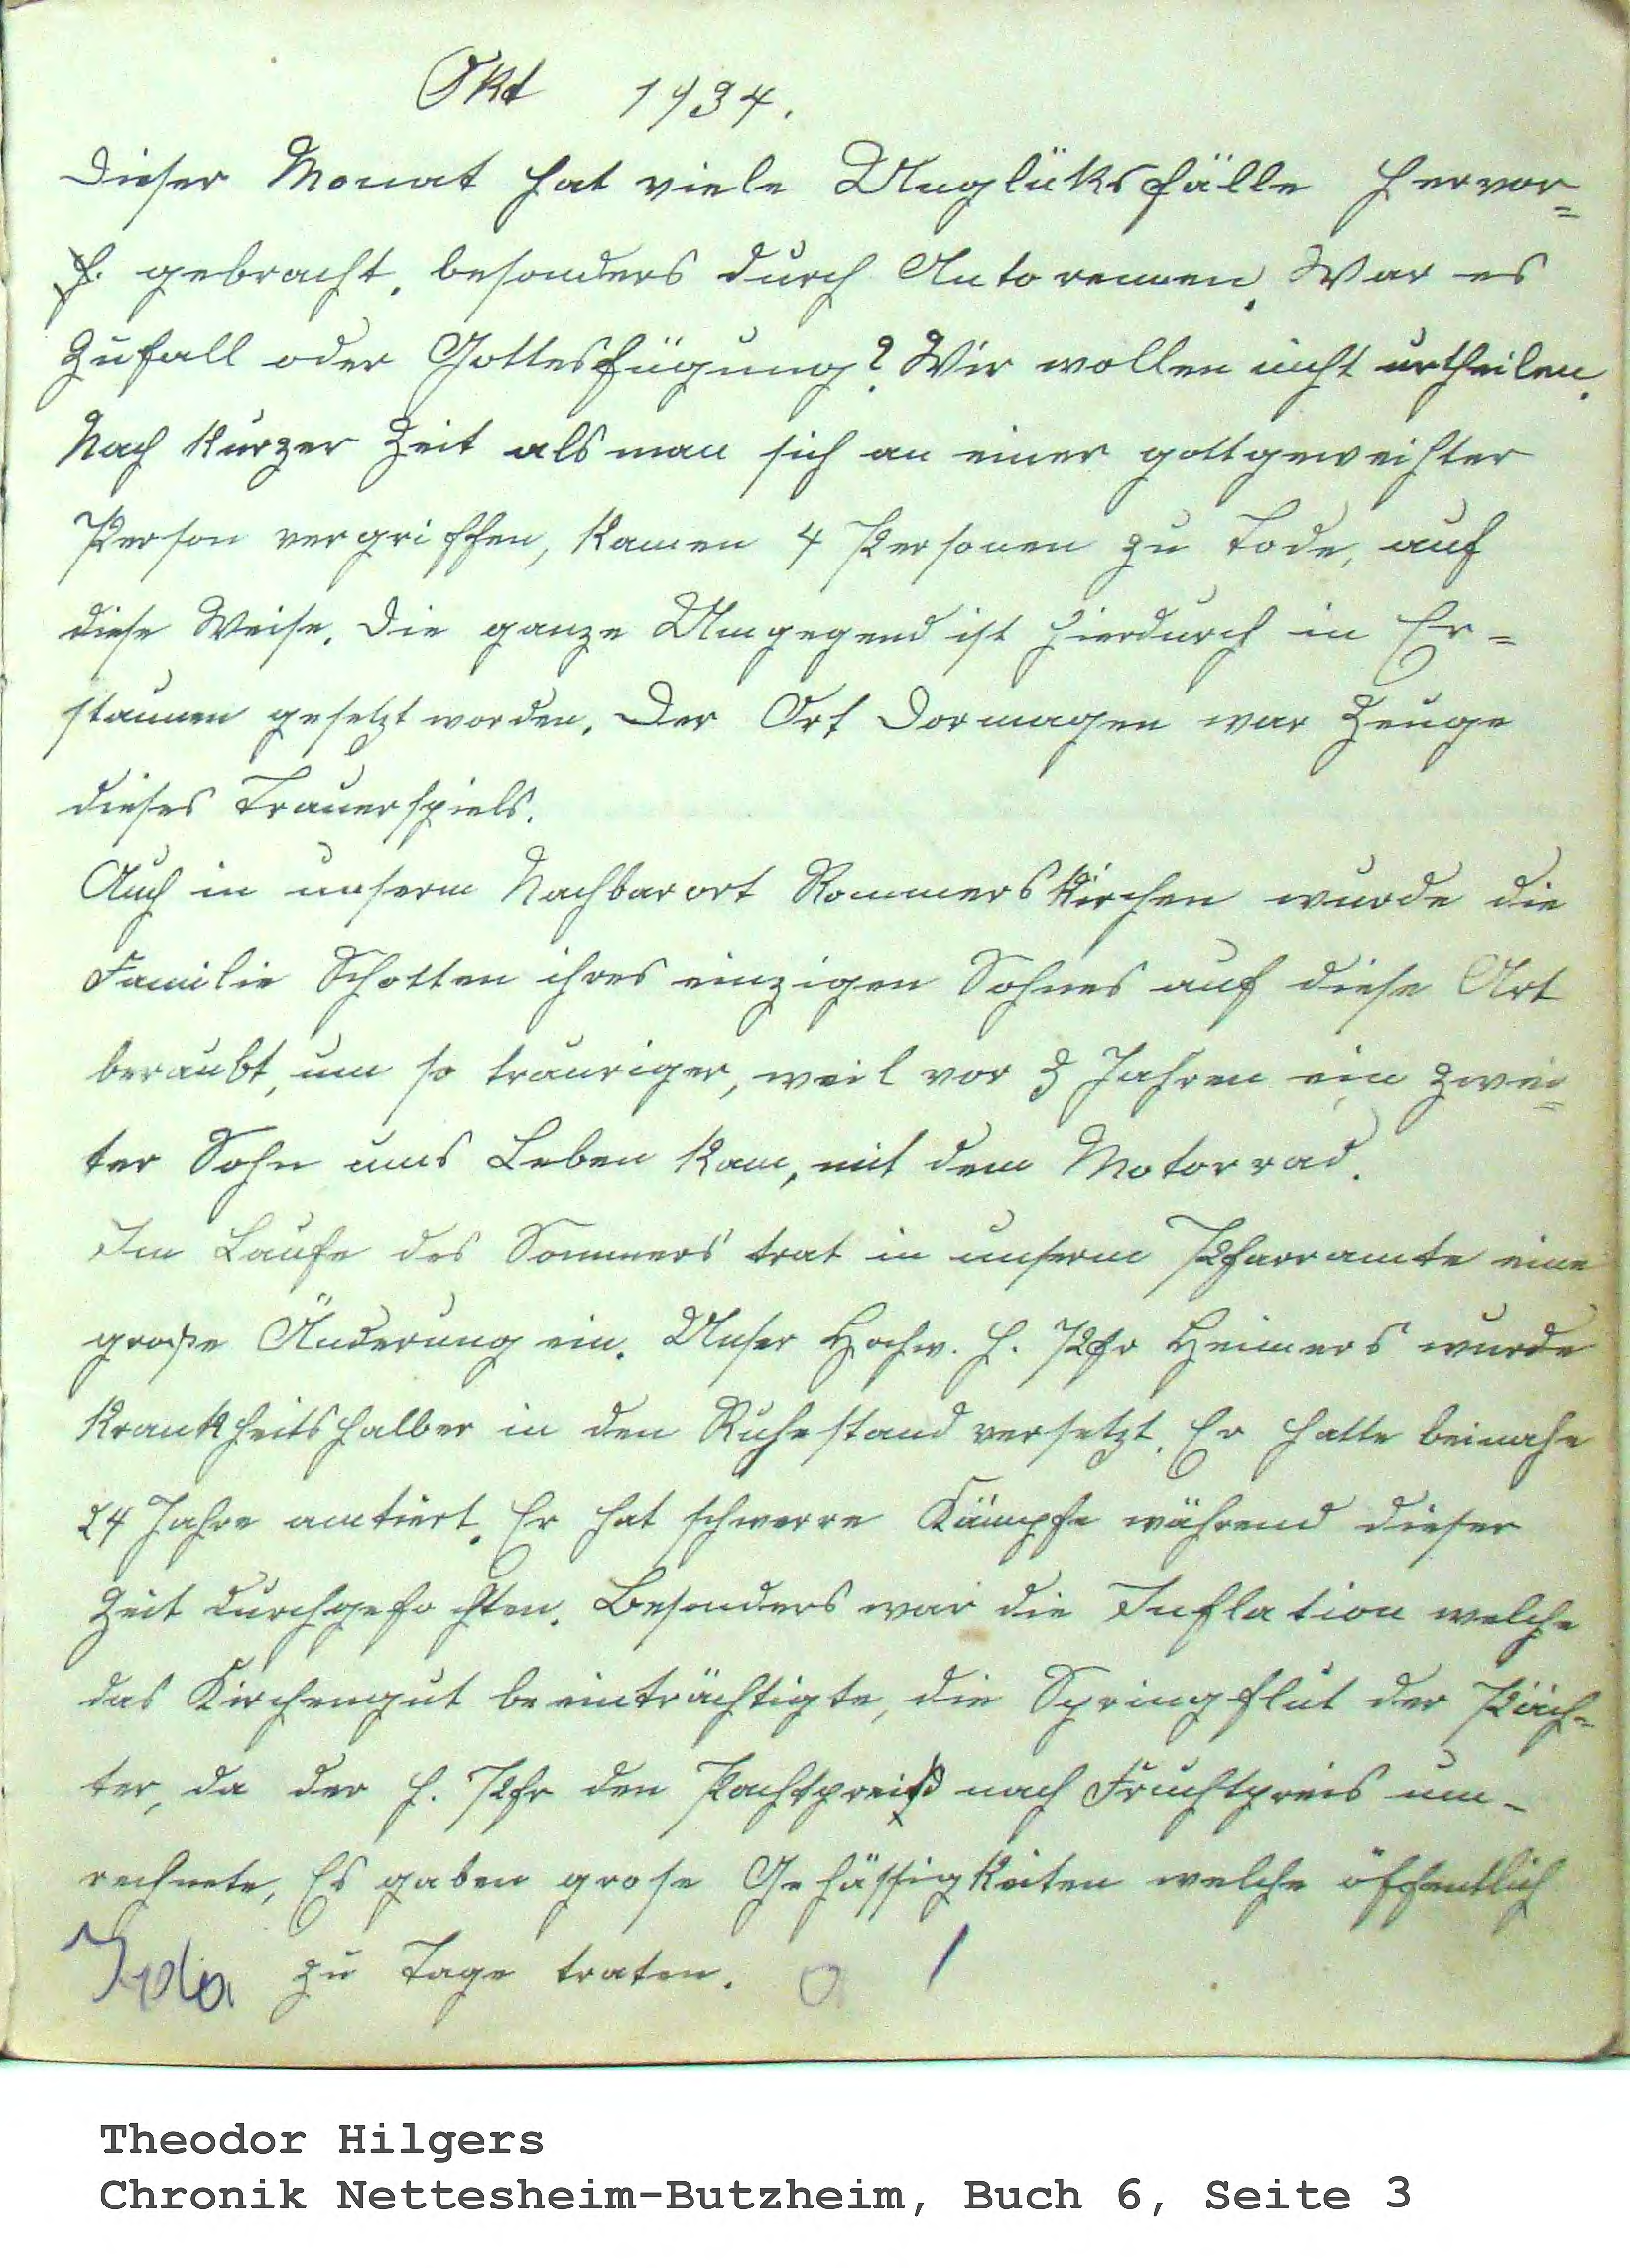 Okt 1934.
Dieser Monat hat viele Unglüksfälle hervor=
h. gebracht, besonders durch Autorennen. War es
Zufall oder Gottesfügung? Wir wollen nicht urtheilen.
Nach kurzer Zeit als man sich an einer gottgeweihter
Person vergriffen, kamen 4 Personen zu Tode, auf
diese Weise. Die ganze Umgegend ist hierdurch in Er=
staunen gesetzt worden. Der Ort Dormagen war Zeuge
dieses Trauerspiels.
Auch in unserm Nachbarort Rommerskirchen wurde die
Familie Schotten ihres einzigen Sohnes auf diese Art
beraubt, um so trauriger, weil vor 3 Jahren ein zwei=
ter Sohn ums Leben kam, mit dem Motorrad.
Im Laufe des Sommers trat in unserm Pfarramte eine
große Änderung ein. Unser Hochw. H. Pfr Heimers wurde
krankheitshalber in den Ruhestand versetzt. Er hatte beinahe
24 Jahre amtiert. Er hat schwerre Kämpfe während dieser
Zeit durchgefochten. Besonders war die Inflation welche
das Kirchengut beeinträchtigte, die Springflut der Päch=
ter, da der H. Pfr den Pachtpreis nach Fruchtpreis um-
rechnete, Es gaben grose Gehässigkeiten welche öffentlich
zu Tage traten.
Theodor Hilgers
Chronik Nettesheim-Butzheim, Buch 6, Seite 3